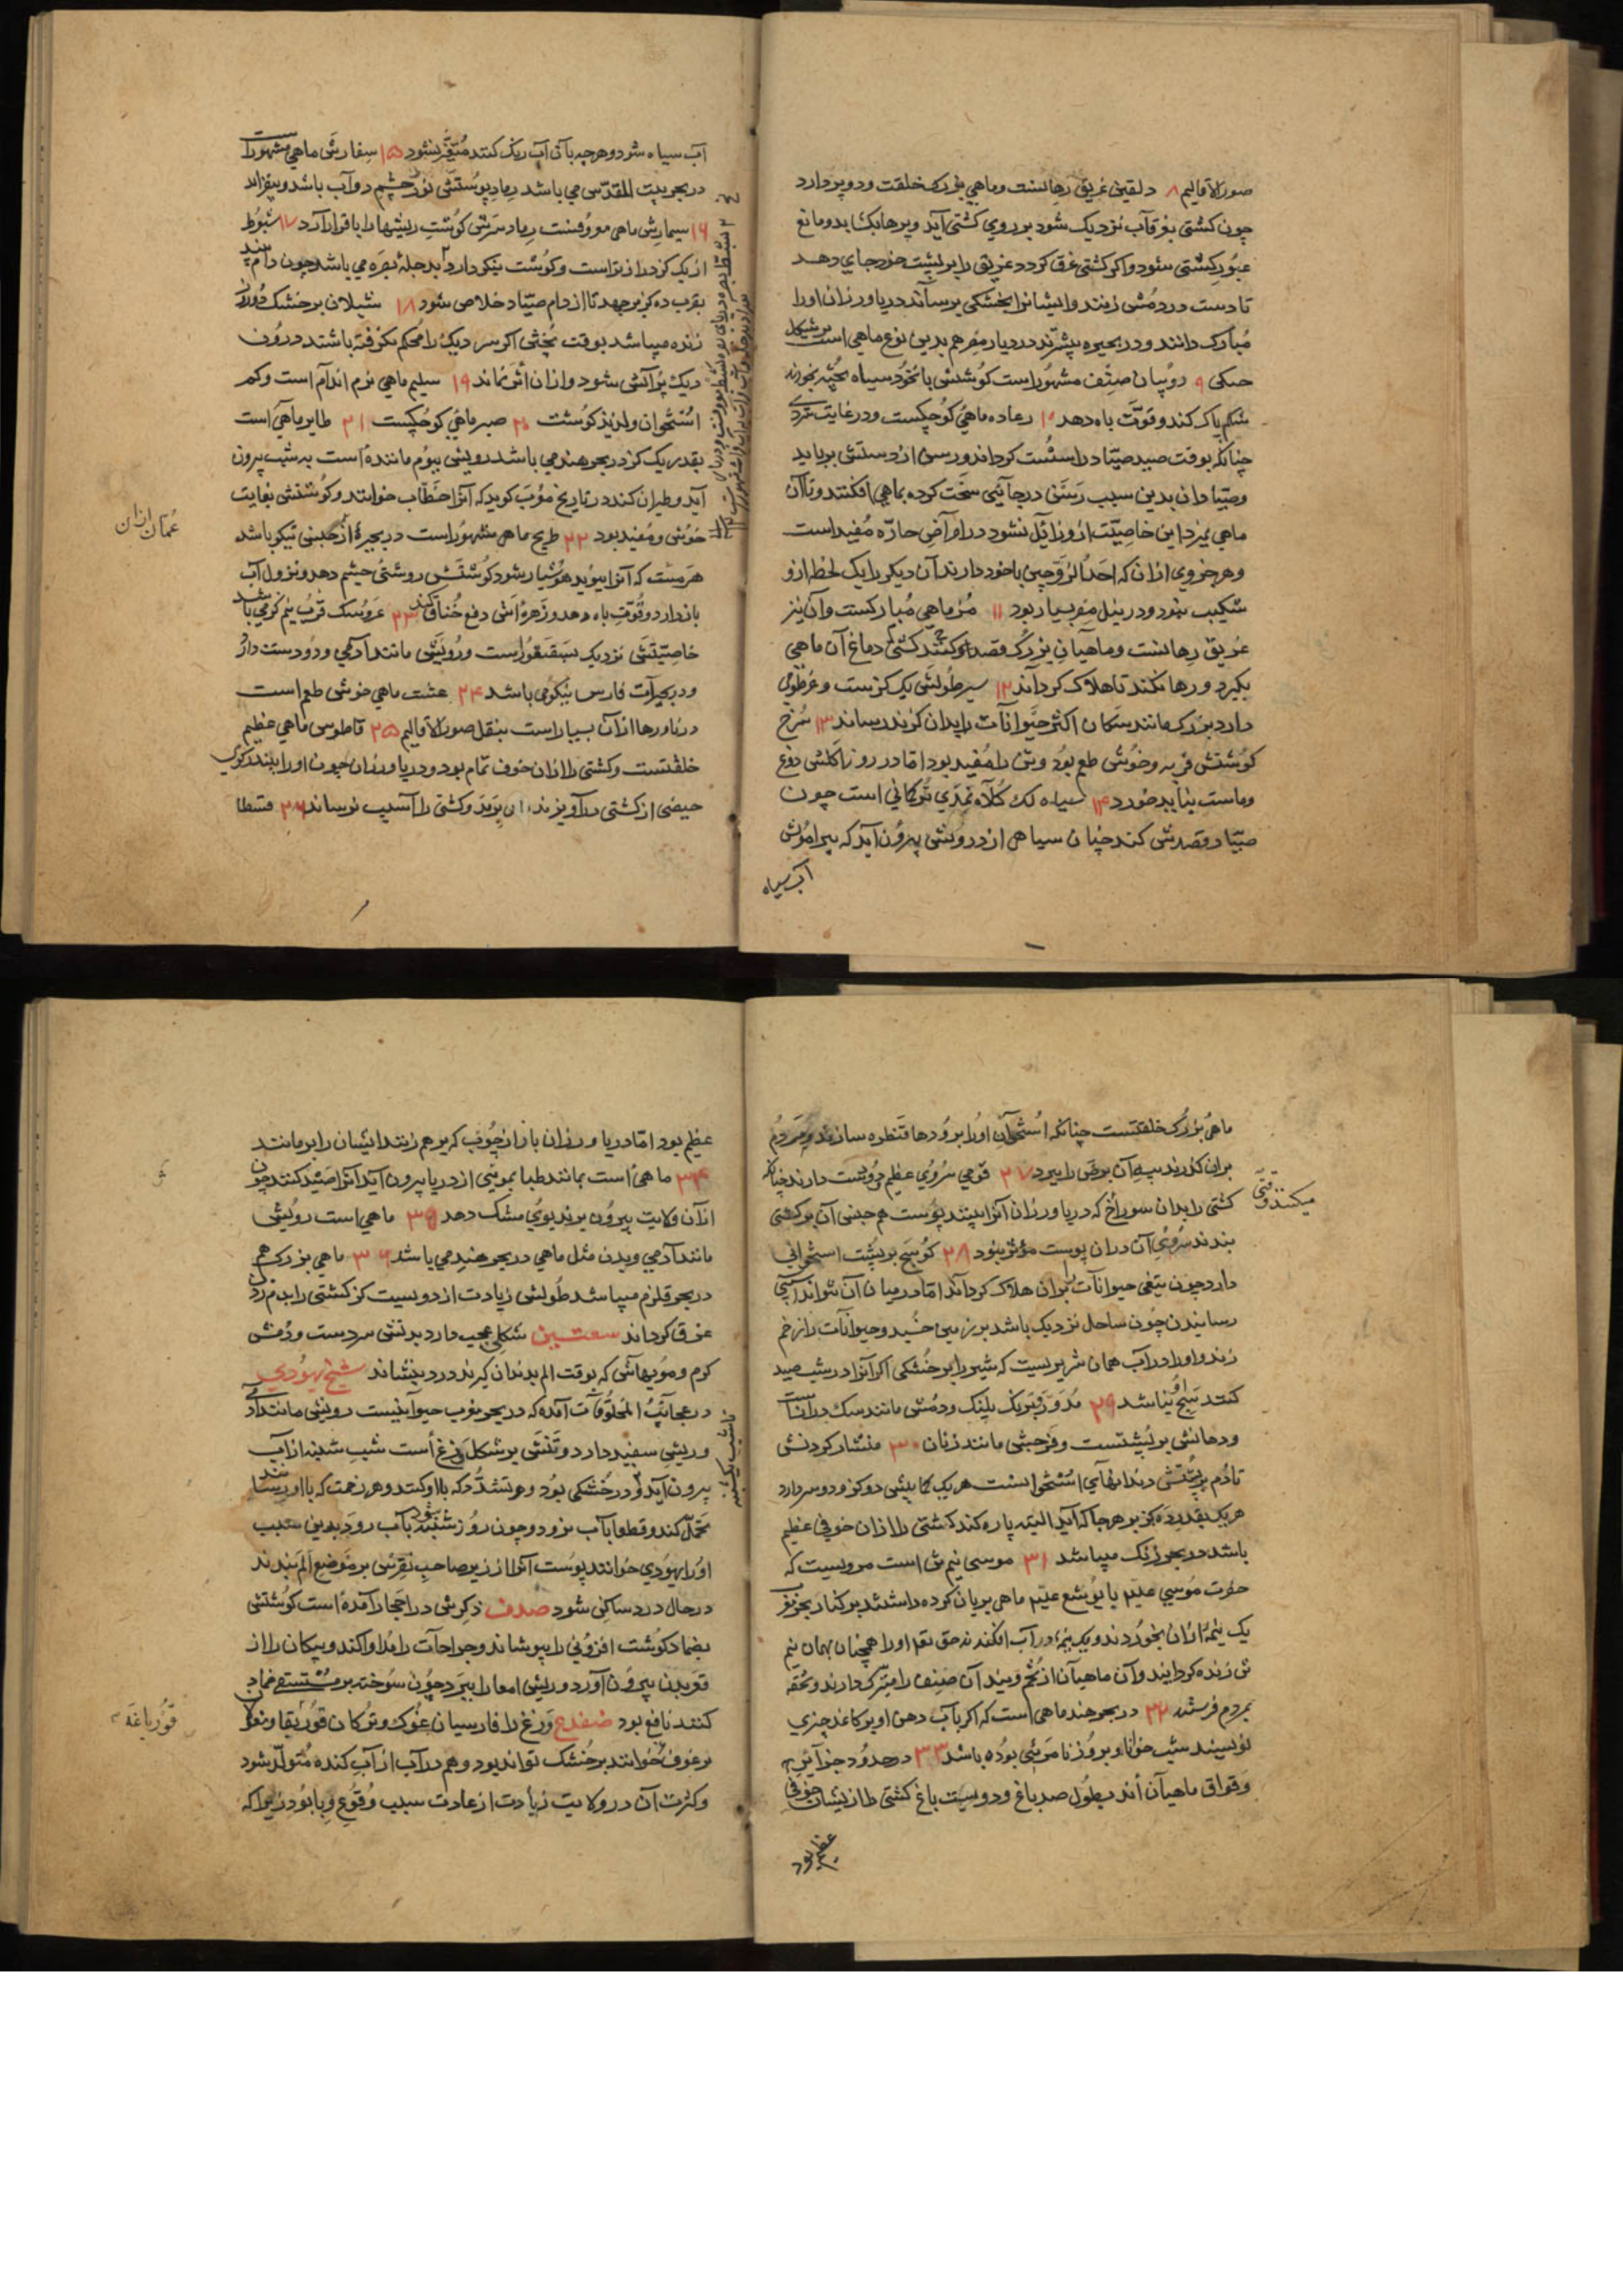 صور الاقالیم ۸ دلفین غریق رهانست و ماهیی بزرک خلقت و دو پر دارد
چون کشتی بغرقاب نزدیک شود بر روی کشتی آید و پرها بکشاید و مانع
عبور کشتی شود و اکر کشتی غرق کردد غریق را بر پشت خود جای دهد
تا دست در دمش زنند و ایشانرا بخشکی رساند دریاورزان او را
مبارک دانند و در بحیره بیشترند در دیار مصر هم بدین نوع ماهی است بر شکل
۹ روبیان صنف مشهور است کوشتش با نخود سیاه پخته بخورند
شکم پاک کند و قوت باه دهد ۱۰ رعاده ماهی کوچکست و در غایت سردی
چنانکه بوقت صید صیاد را سست کرداند و رسن از دستش برباید
و صیادان بدین سبب رسن در جائی سخت کرده بماهی افکنند و تا آن
ماهی بمیرد این خاصیت ازو زایل نشود در امراض حاره مفید است
و هر جزوی ازان که احد الزوجین با خود دارند آن دیکر را یک لحظه ازو
شکیب نبود و در نیل مصر بسیار بود ۱۱ ماهی مبارکست و آن نیز
غریق رهانست و ماهیان بزرک قصد او کنند دماغ آن ماهی
بکیرد و رها نکند تا هلاک کرداند ۱۲ طولش یک کزست و خرطومی
دارد بزرک مانند اکثر حیوانات را بدان کزند رساند ۱۳ سرخ
کوشتش فربه و خوش طعم بود و تن را مفید بود اما در روز اکلش دوغ
و ماست نباید خورد ۱۴ سیاه لک کلاه نمدی ترکانی است چون
صیاد قصدش کند چنان سیاهی از درونش بیرون آید که پیرامونش
آب سیاه
آب سیاه شود و هرچه بآن آب رنک کنند متغیر نشود ۱۵ ماهی مشهور است
در بحر بیت المقدس می باشد رماد پوستش نور چشم دوآب باشد و بیفزاید
۱۶ سیمارس ماهی معروفست رماد سرش کوشت ریشها را با قرار آرد ۱۷ شبوط
از یک کز درازتر است و کوشت نیکو دارد بدجله بصره می باشد چون دام بیند
بقرب ده کز برجهد تا از دام صیاد خلاص شود ۱۸ شیلان بر خشک دو روز
زنده میباشد بوقت پختن اکر سر دیک را محکم نکرفته باشند درون
دیک پر آتش شود و ازان اثر نماند ۱۹ سلیم ماهی نرم اندام است و کم
استخوان و لذیذ کوشت ۲۰ صبر ماهی کوچکست ۲۱ طایر ماهی است
بقدر یک کز در بحر هند می باشد رویش ببوم ماننده است به شب بیرون
آید و طیران کند در تاریخ مغرب کوید که آنرا خطاب خوانند و کوشتش بغایت
خوش و مفید بود ۲۲ طریح ماهی مشهور است در بحیره ارجیش نیکو باشد
هر مست که آنرا ببوید هوشیار شود کوشتش روشنی چشم دهد و نزول آب
باز دارد و قوت باه دهد و زهره اش دفع خناق کند ۲۳ عروسک قرب نیم کز می باشد
خاصیتش نزدیک سقنقور است و رویش مانند آدمی و دو دست دارد
و در بحیرات فارس نیکو می باشد ۲۴ عشت ماهی خوش طعم است
در ناورها ازان بسیار است بنقل صور الاقالیم ۲۵ قاطوس ماهی عظیم
خلقتست و کشتی را ازان خوف تمام بود و دریاورزان چون او را بینند رکوی
حیضی از کشتی درآویزند ازان برمد و کشتی را آسیب نرساند ۲۶ قسطا
عمان ازان
ماهی بزرک خلقتست چنانکه استخوان او را بر رودها قنطره سازند و مردم
بران کذرند پیه آن برص را ببرد ۲۷ قوقی سروی عظیم درشت دارند چنانک
کشتی را بدان سوراخ کند دریاورزان آنرا ببینند پوست هم جنس آن بر کشتی
بندند سروی آن دران پوست مؤثر نبود ۲۸ کوسج بر پشت استخوانی
دارد چون تیغی حیوانات را بران هلاک کرداند اما در میان آن نتواند آسیبی
رسانیدن چون ساحل نزدیک باشد بر زمین خسبد و حیوانات را زخم
زند و او را در آب همان شریست که شیر را بر خشکی اکر آنرا در شب صید
کنند بیه او نباشد ۲۹ رنک پلنک و دمش مانند سک درانست
و دهانش بر پشتست و فرجش مانند زنان ۳۰ منشار کردنش
تا دم بر پشتش دندانهای استخوانست هر یک کمابیش دو کز و دو سر دارد
هر یک بقدر ده کز بر هرجا که آید البته پاره کند کشتی را ازان خوفی عظیم
باشد در بحر زنک میباشد ۳۱ موسی نیم تن است مرویست که
حضرت موسی علیه با یوشع علیه ماهی بریان کرده داشتند بر کنار بحر مغرب
یک نیمه ازان بخوردند و یک نیمه در آب افکندند حق تعه او را همچنان بهمان نیم
تن زنده کردانید و آن ماهیان از تخم ویند آن صنف را متبرک دارند و تحفه
بمردم فرستند ۳۲ در بحر هند ماهی است که اکر بآب دهن او بر کاغذ چیزی
نویسند شب خوانا و بروز نامرئی بوده باشد ۳۳ در حدود جزایر
وقواق ماهیان اند بطول صد باغ و دویست باغ کشتی را ازیشان خوفی
عظیم بود
عظیم بود اما دریاورزان بآواز چوب که برهم زنند ایشان را برمانند
۳۴ ماهی است بمانند طبا بموئی از دریا بیرون آید آنرا صید کنند چون
ازان ولایت بیرون برند بوی مشک دهد ۳۵ ماهی است رویش
مانند آدمی و بدن مثل ماهی در بحر هند می باشد ۳۶ ماهی بزرک هم
در بحر قلزم میباشد طولش زیادت از دویست کز کشتی را بدم زدن
غرق کرداند شکلی عجیب دارد بر تنش سر دست و دمش
کرم و مویهاش که بوقت الم بدندان کیرند درد بنشاند شیخ یهودی
در عجایب المخلوقات آمده که در بحر مغرب حیوانیست رویش مانند آدمی
و ریش سفید دارد و تنش بر شکل وزغ است شب شنبه از آب
بیرون آید و در خشکی بود و هر تشدد که با او کنند و هر زحمت که باو رسانند
تحمل کند و قطعا بآب نرود و چون روز شنبه شود بآب رود بدین سبب
او را یهودی خوانند پوست آنرا از زیر صاحب نقرس بر موضع الم بندند
در حال درد ساکن شود صدف ذکرش در احجار آمده است کوشتش
بضماد کوشت افزونی را بپوشاند و جراحات را مداوا کند و پیکان را از
قعر بدن بیرون آورد و ریش امعا را ببرد چون سوخته بر مستسقی ضماد
کنند نافع بود ضفدع وزغ را فارسیان غوک و ترکان قوربقا و مغول
خوانند بر خشک تواند بود و هم در آب از آب کنده متولد شود
و کثرت آن در ولایت زیادت از عادت سبب وقوع وبا بود زیرا که
قورباغه